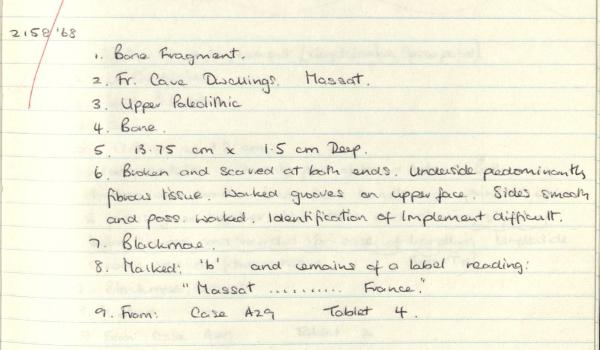 2158 '68
1. Bone Fragment.
2. Fr. Cave Dwellings. Massat.
3. Upper Paleolithic
4. Bone.
5. 13.75 cm x 1.5 cm Deep.
6. Broken and scaved at both ends. Underside predominantly
fibrous tissue. Worked grooves on upper face. Sides smooth
and poss. worked. Identification of Implement difficult.
7. Blackmore.
8. Marked: 'b' and remains of a label reading:
"Massat .......... France."
9. From: Case A29 Tablet 4.